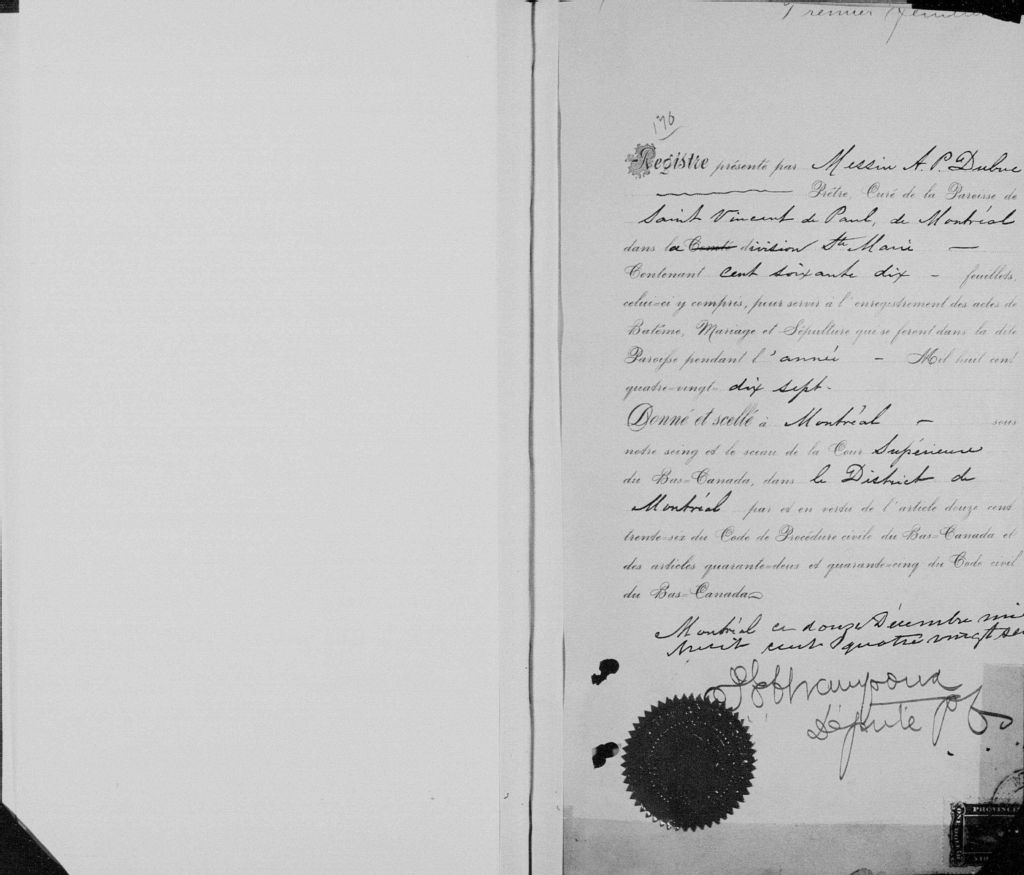 Premier feuillet
176
Registre présenté par Messire A. P. Dubuc
Prêtre, Curé de la Paroisse de
Saint Vincent de Paul, de Montréal
dans la Comté division Ste Marie —
Contenant cent soixante dix — feuillets,
celui=ci y compris, pour servir à l'enregistrement des actes de
Batême, Mariage et Sépulture qui se feront dans la dite
Paroisse pendant l'année — Mil huit cent
quatre=vingt= dix sept.
Donné et scellé à Montréal — sous
notre seing et le sceau de la Cour Supérieure
du Bas=Canada, dans le District de
Montréal par et en vertu de l'article douze cent
trente=six du Code de Procédure civile du Bas=Canada et
des articles quarante=deux et quarante=cinq du Code civil
du Bas=Canada
Montréal ce douze Décembre mi
huit cent quatre vingt se
Député P
PROVINCE